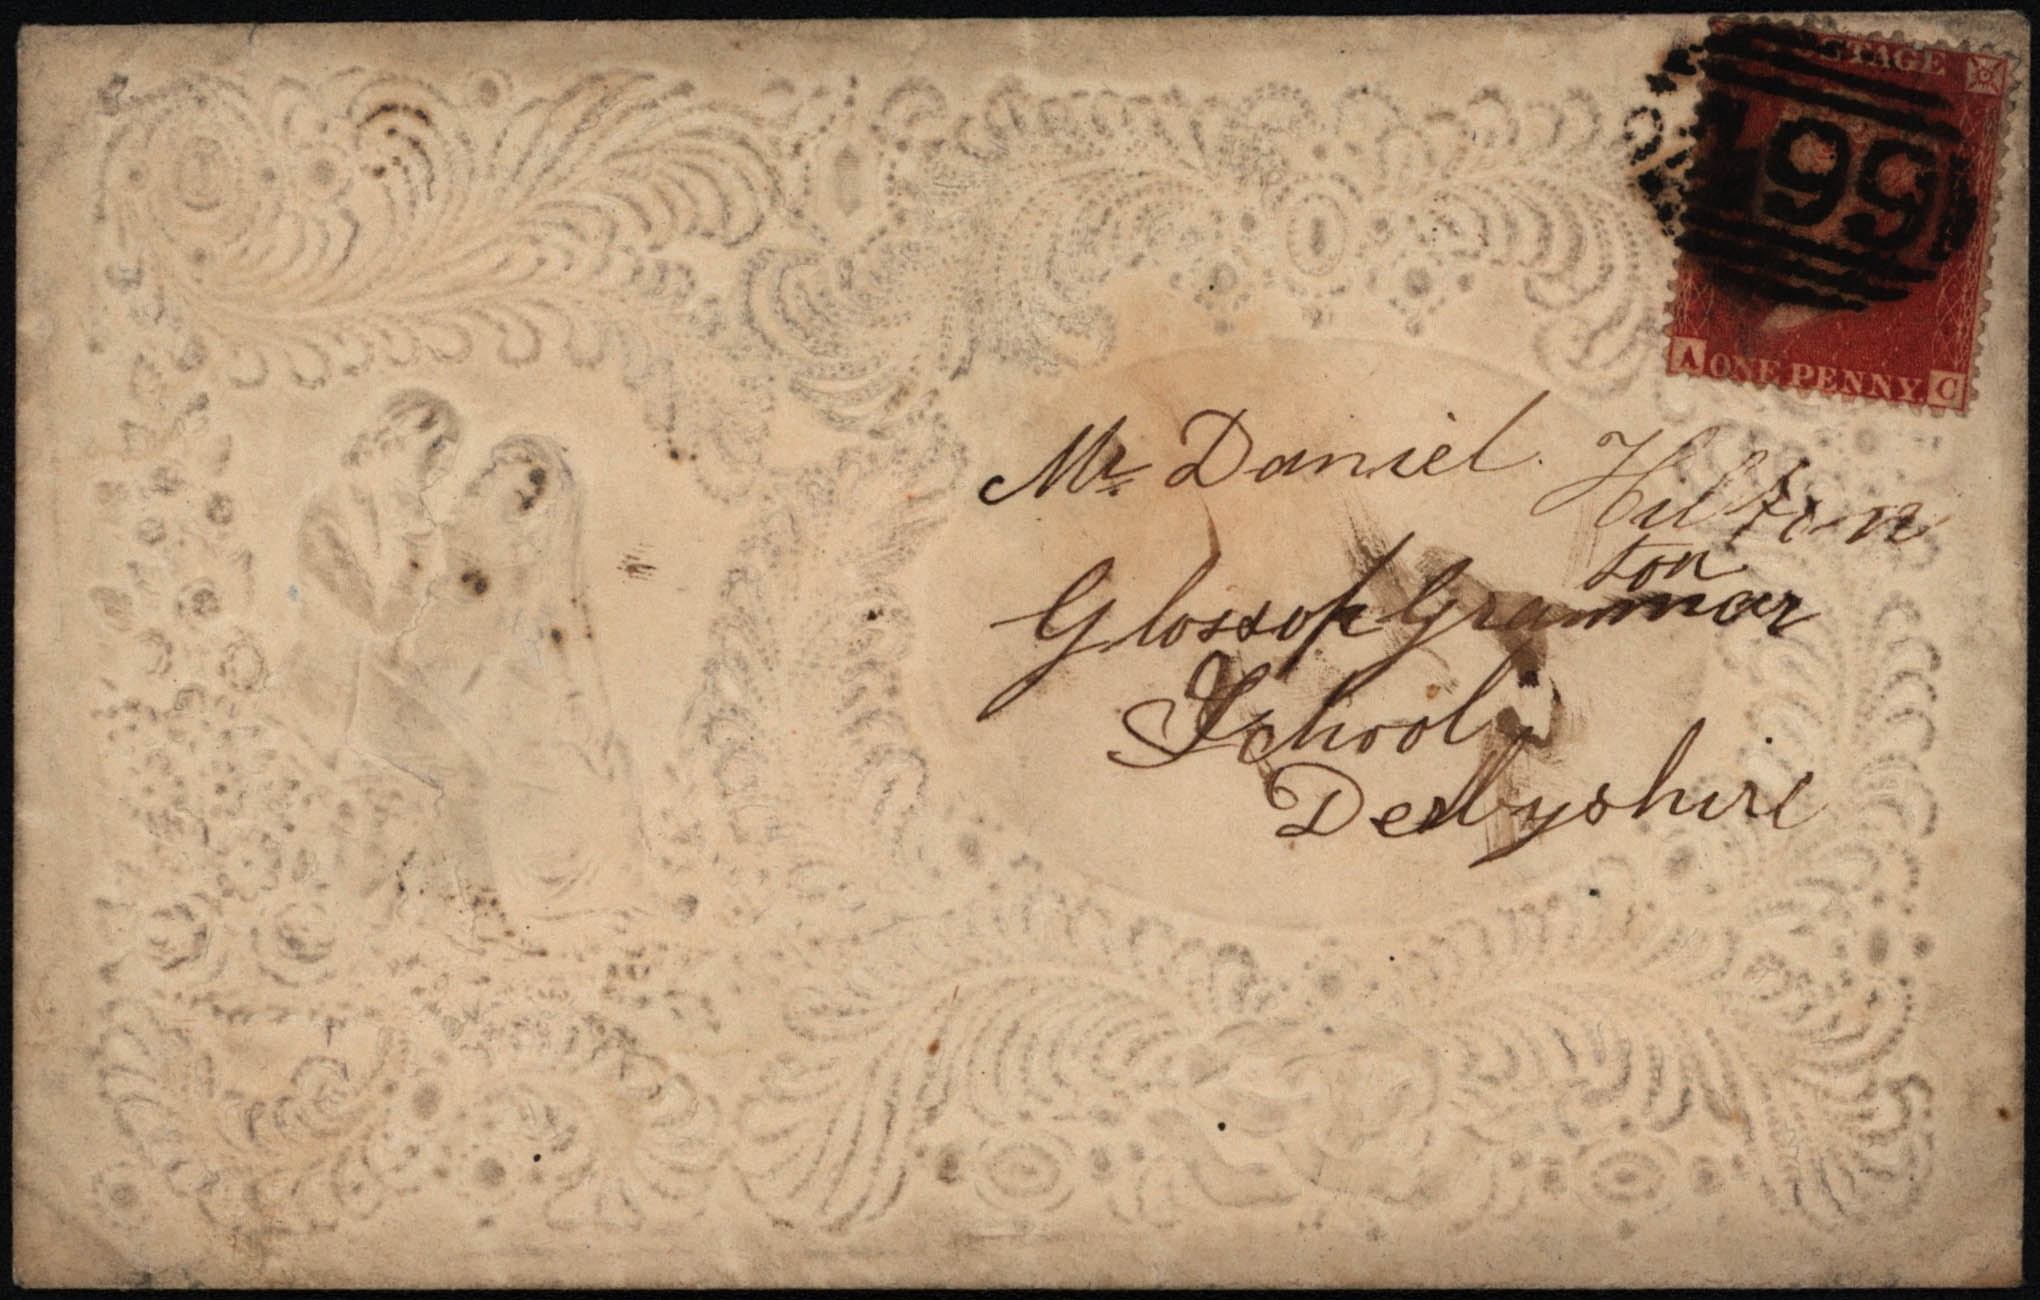 POSTAGE
499
A ONE PENNY. C
Mr. Daniel. Hilton
ton
Glossop Grammar
School
Derbyshire